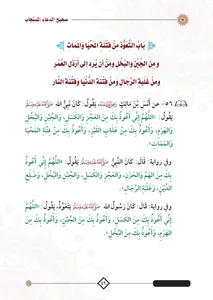 صحيح الدعاء المستجاب
بَابُ التَّعَوُّذِ مِنْ فِتْنَةِ المَحْيَا وَالمَمَاتِ
وَمِنَ الْجُبْنِ وَالبُخْلِ وَمِنْ أَنْ يُرَدَّ إِلَى أَرْذَلِ الْعُمُرِ
وَمِنْ غَلَبَةِ الرِّجَالِ وَمِنْ فِتْنَةِ الدُّنْيَا وَفِتْنَةِ النَّارِ
٥٦- عَنْ أَنَسِ بْنِ مَالِكٍ يَقُولُ: كَانَ نَبِيُّ اللهِ يَقُولُ: «اللَّهُمَّ
إِنِّي أَعُوذُ بِكَ مِنَ العَجْزِ، وَالكَسَلِ، وَالجُبْنِ، وَالبُخْلِ،
وَالهَرَمِ، وَأَعُوذُ بِكَ مِنْ عَذَابِ القَبْرِ، وَأَعُوذُ بِكَ مِنْ فِتْنَةِ المَحْيَا
وَالمَمَاتِ».
وفي رواية: قَالَ: كَانَ النَّبِيُّ يَقُولُ: «اللَّهُمَّ إِنِّي أَعُوذُ
بِكَ مِنَ الهَمِّ وَالحَزَنِ، وَالعَجْزِ وَالكَسَلِ، وَالجُبْنِ وَالبُخْلِ، وَضَلَعِ
الدَّيْنِ، وَغَلَبَةِ الرِّجَالِ».
وفي رواية: قَالَ: كَانَ رَسُولُ اللهِ يَتَعَوَّذُ، يَقُولُ: «اللَّهُمَّ
إِنِّي أَعُوذُ بِكَ مِنَ الكَسَلِ، وَأَعُوذُ بِكَ مِنَ الجُبْنِ، وَأَعُوذُ بِكَ مِنَ
الهَرَمِ، وَأَعُوذُ بِكَ مِنَ البُخْلِ».